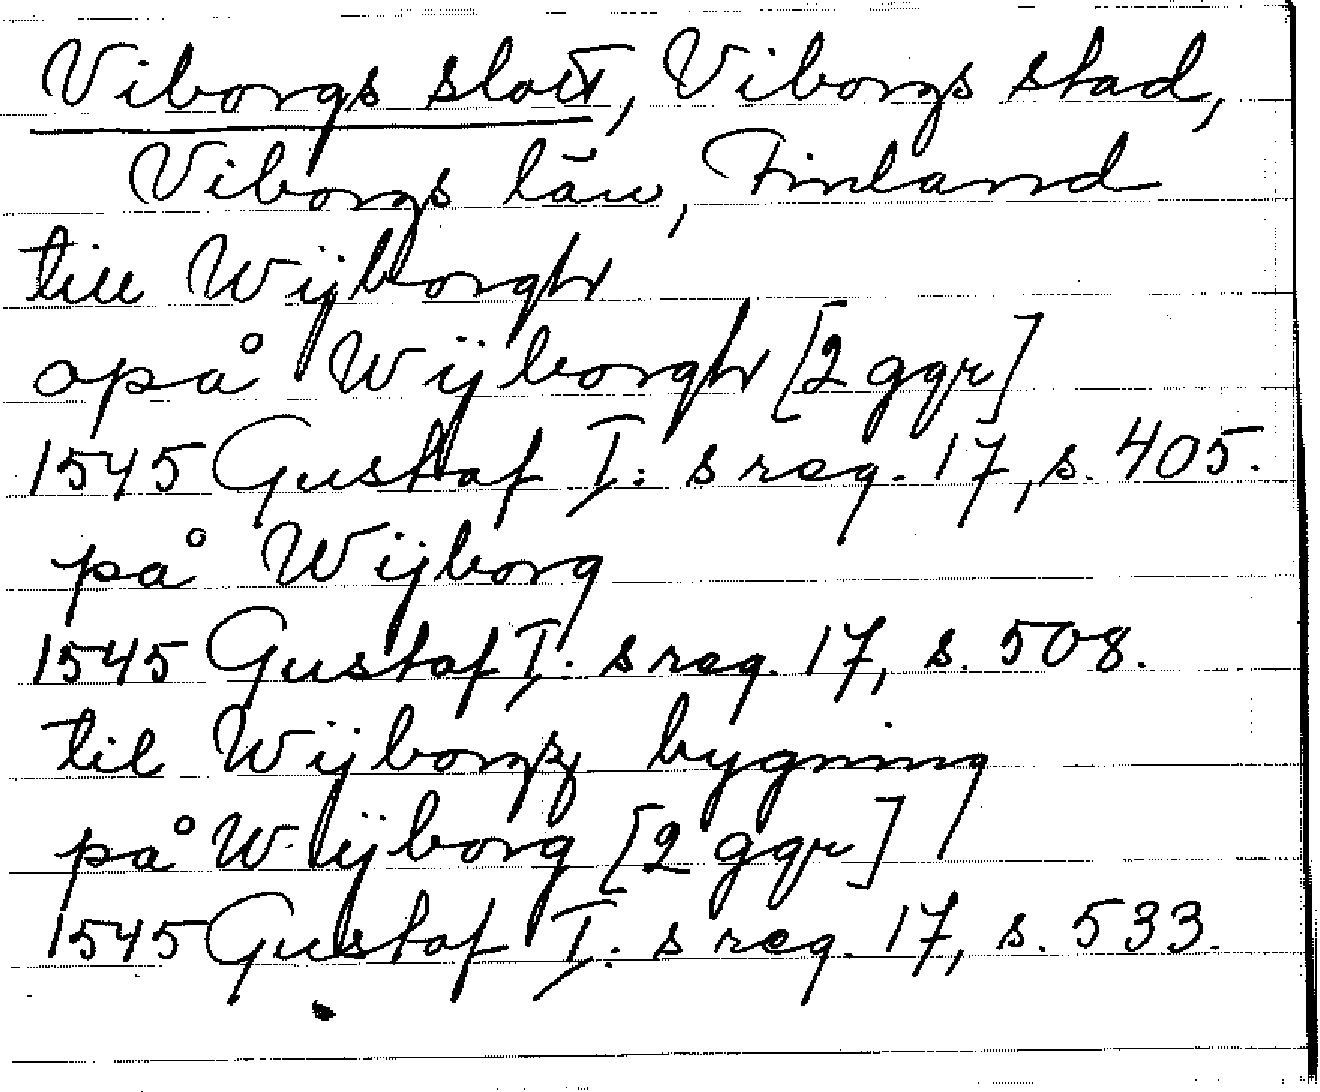 Viborgs slott, Viborgs stad,
Viborgs län, Finland
till Wijborgh
opå Wijborgh [2 ggr]
1545 Gustaf I: s reg. 17, s. 405.
på Wijborg
1545 Gustaf I: s reg. 17, s. 508.
til Wijborgz bygning
på Wijborg [2 ggr]
1545 Gustaf I: s reg. 17, s. 533.